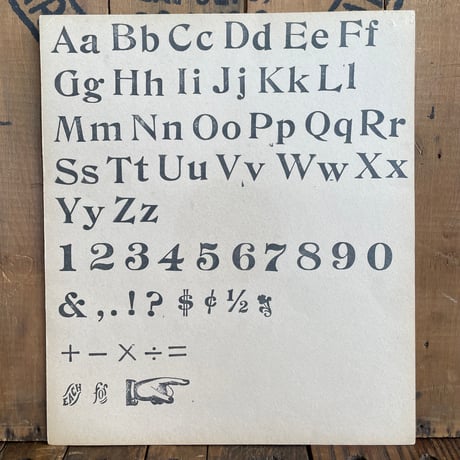 Aa Bb Cc Dd Ee Ff
Gg Hh Ii Jj Kk Ll
Mm Nn Oo Pp Qq Rr
Ss Tt Uu Vv Ww Xx
Yy Zz
1 2 3 4 5 6 7 8 9 0
& , . ! ? $ ¢ ½
+ − × ÷ =
EACH FOR